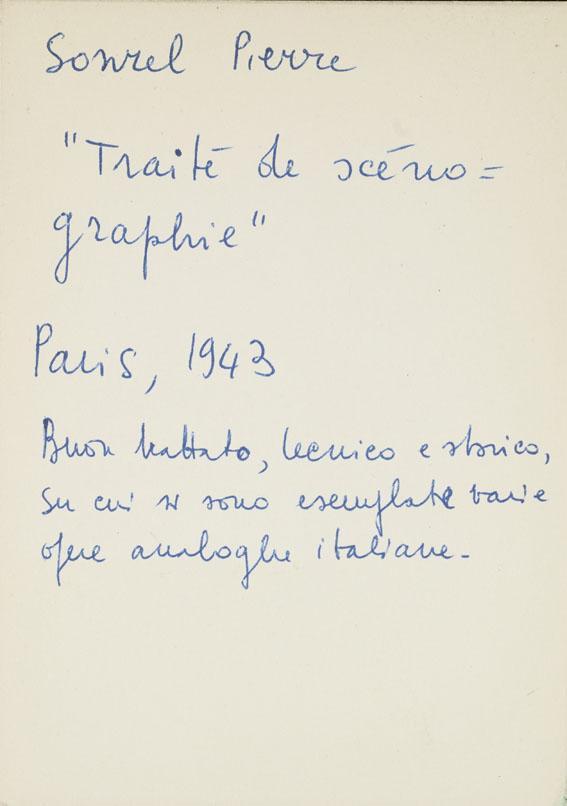 Sonrel Pierre
"Traité de scéno=
graphie"
Paris, 1943
Buon trattato, tecnico e storico,
su cui si sono esemplate varie
opere analoghe italiane.